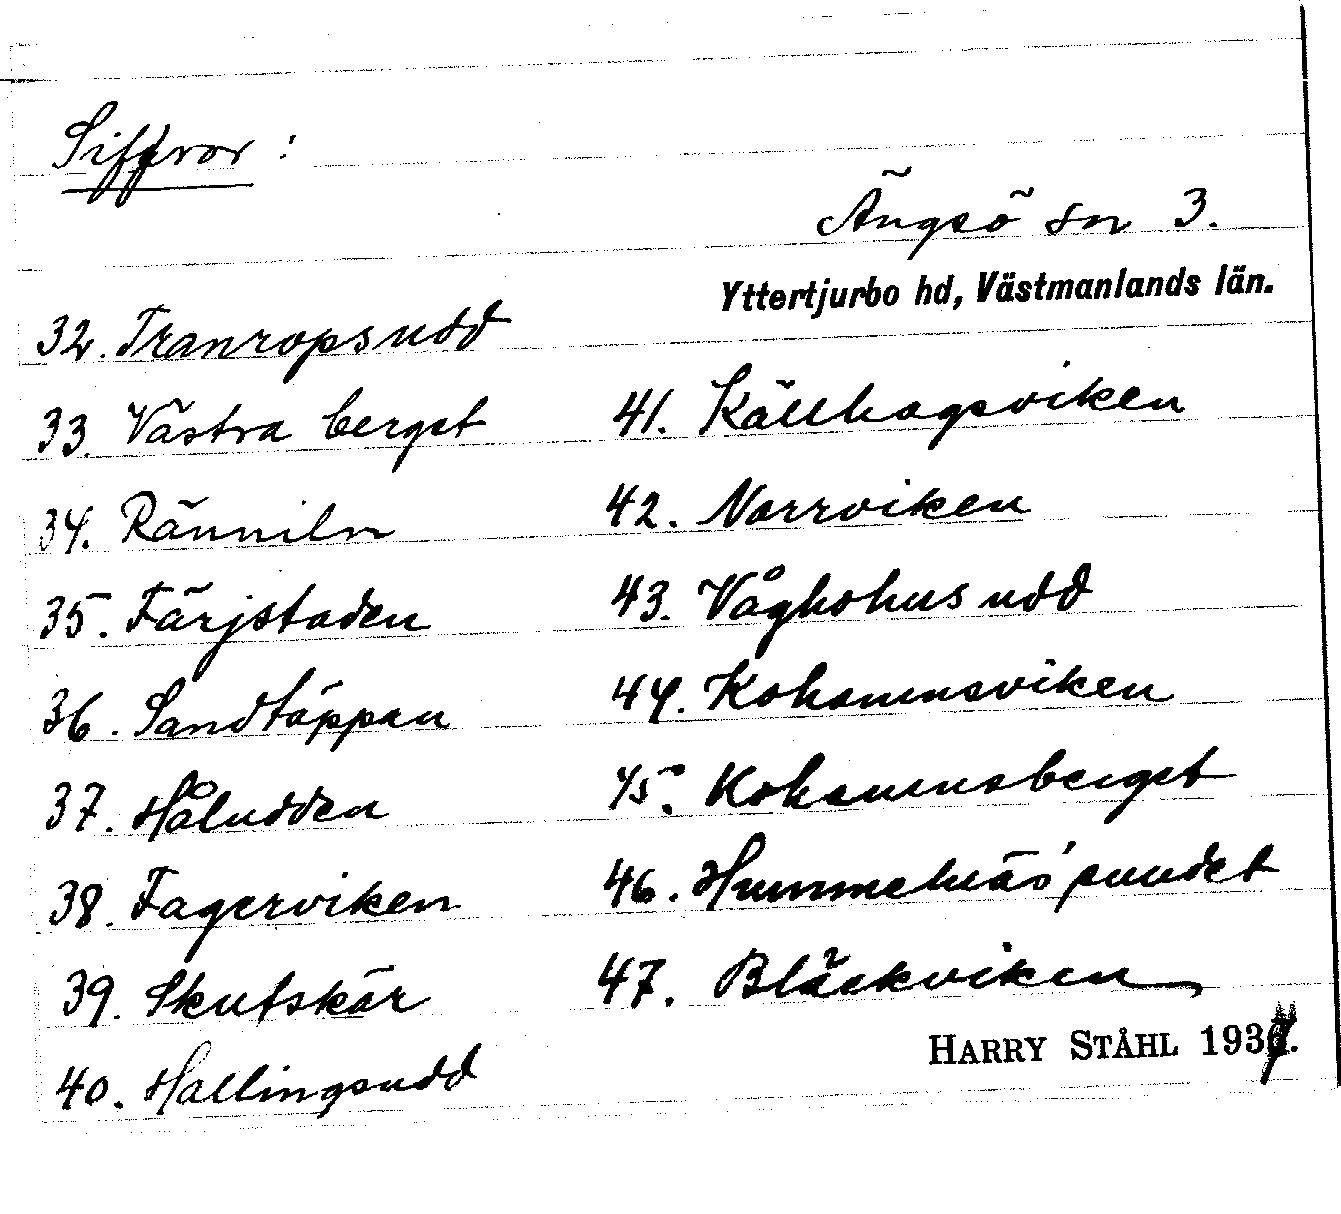 Siffror :
Ängsö sn 3.
Yttertjurbo hd, Västmanlands län.
32. Tranropsudd
33. Västra berget
34. Ränniln
35. Färjstaden
36. Sandtäppan
37. Håludden
38. Fagerviken
39. Skutskär
40. Hallingsudd
41. Källhagsviken
42. Norrviken
43. Våghohusudd
44. Kohamnsviken
45. Kohamnsberget
46. Hummelnäs'sundet
47. Bläckviken
HARRY STÅHL 1937.